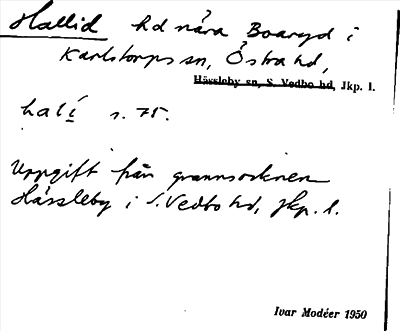 Hallid hd nära Boaryd i
Karlstorps sn, Östra hd,
Hässleby sn, S. Vedbo hd, Jkp. l.
halí s. 75.
Uppgift från grannsocknen
Hässleby i S. Vedbo hd, Jkp. l.
Ivar Modéer 1950